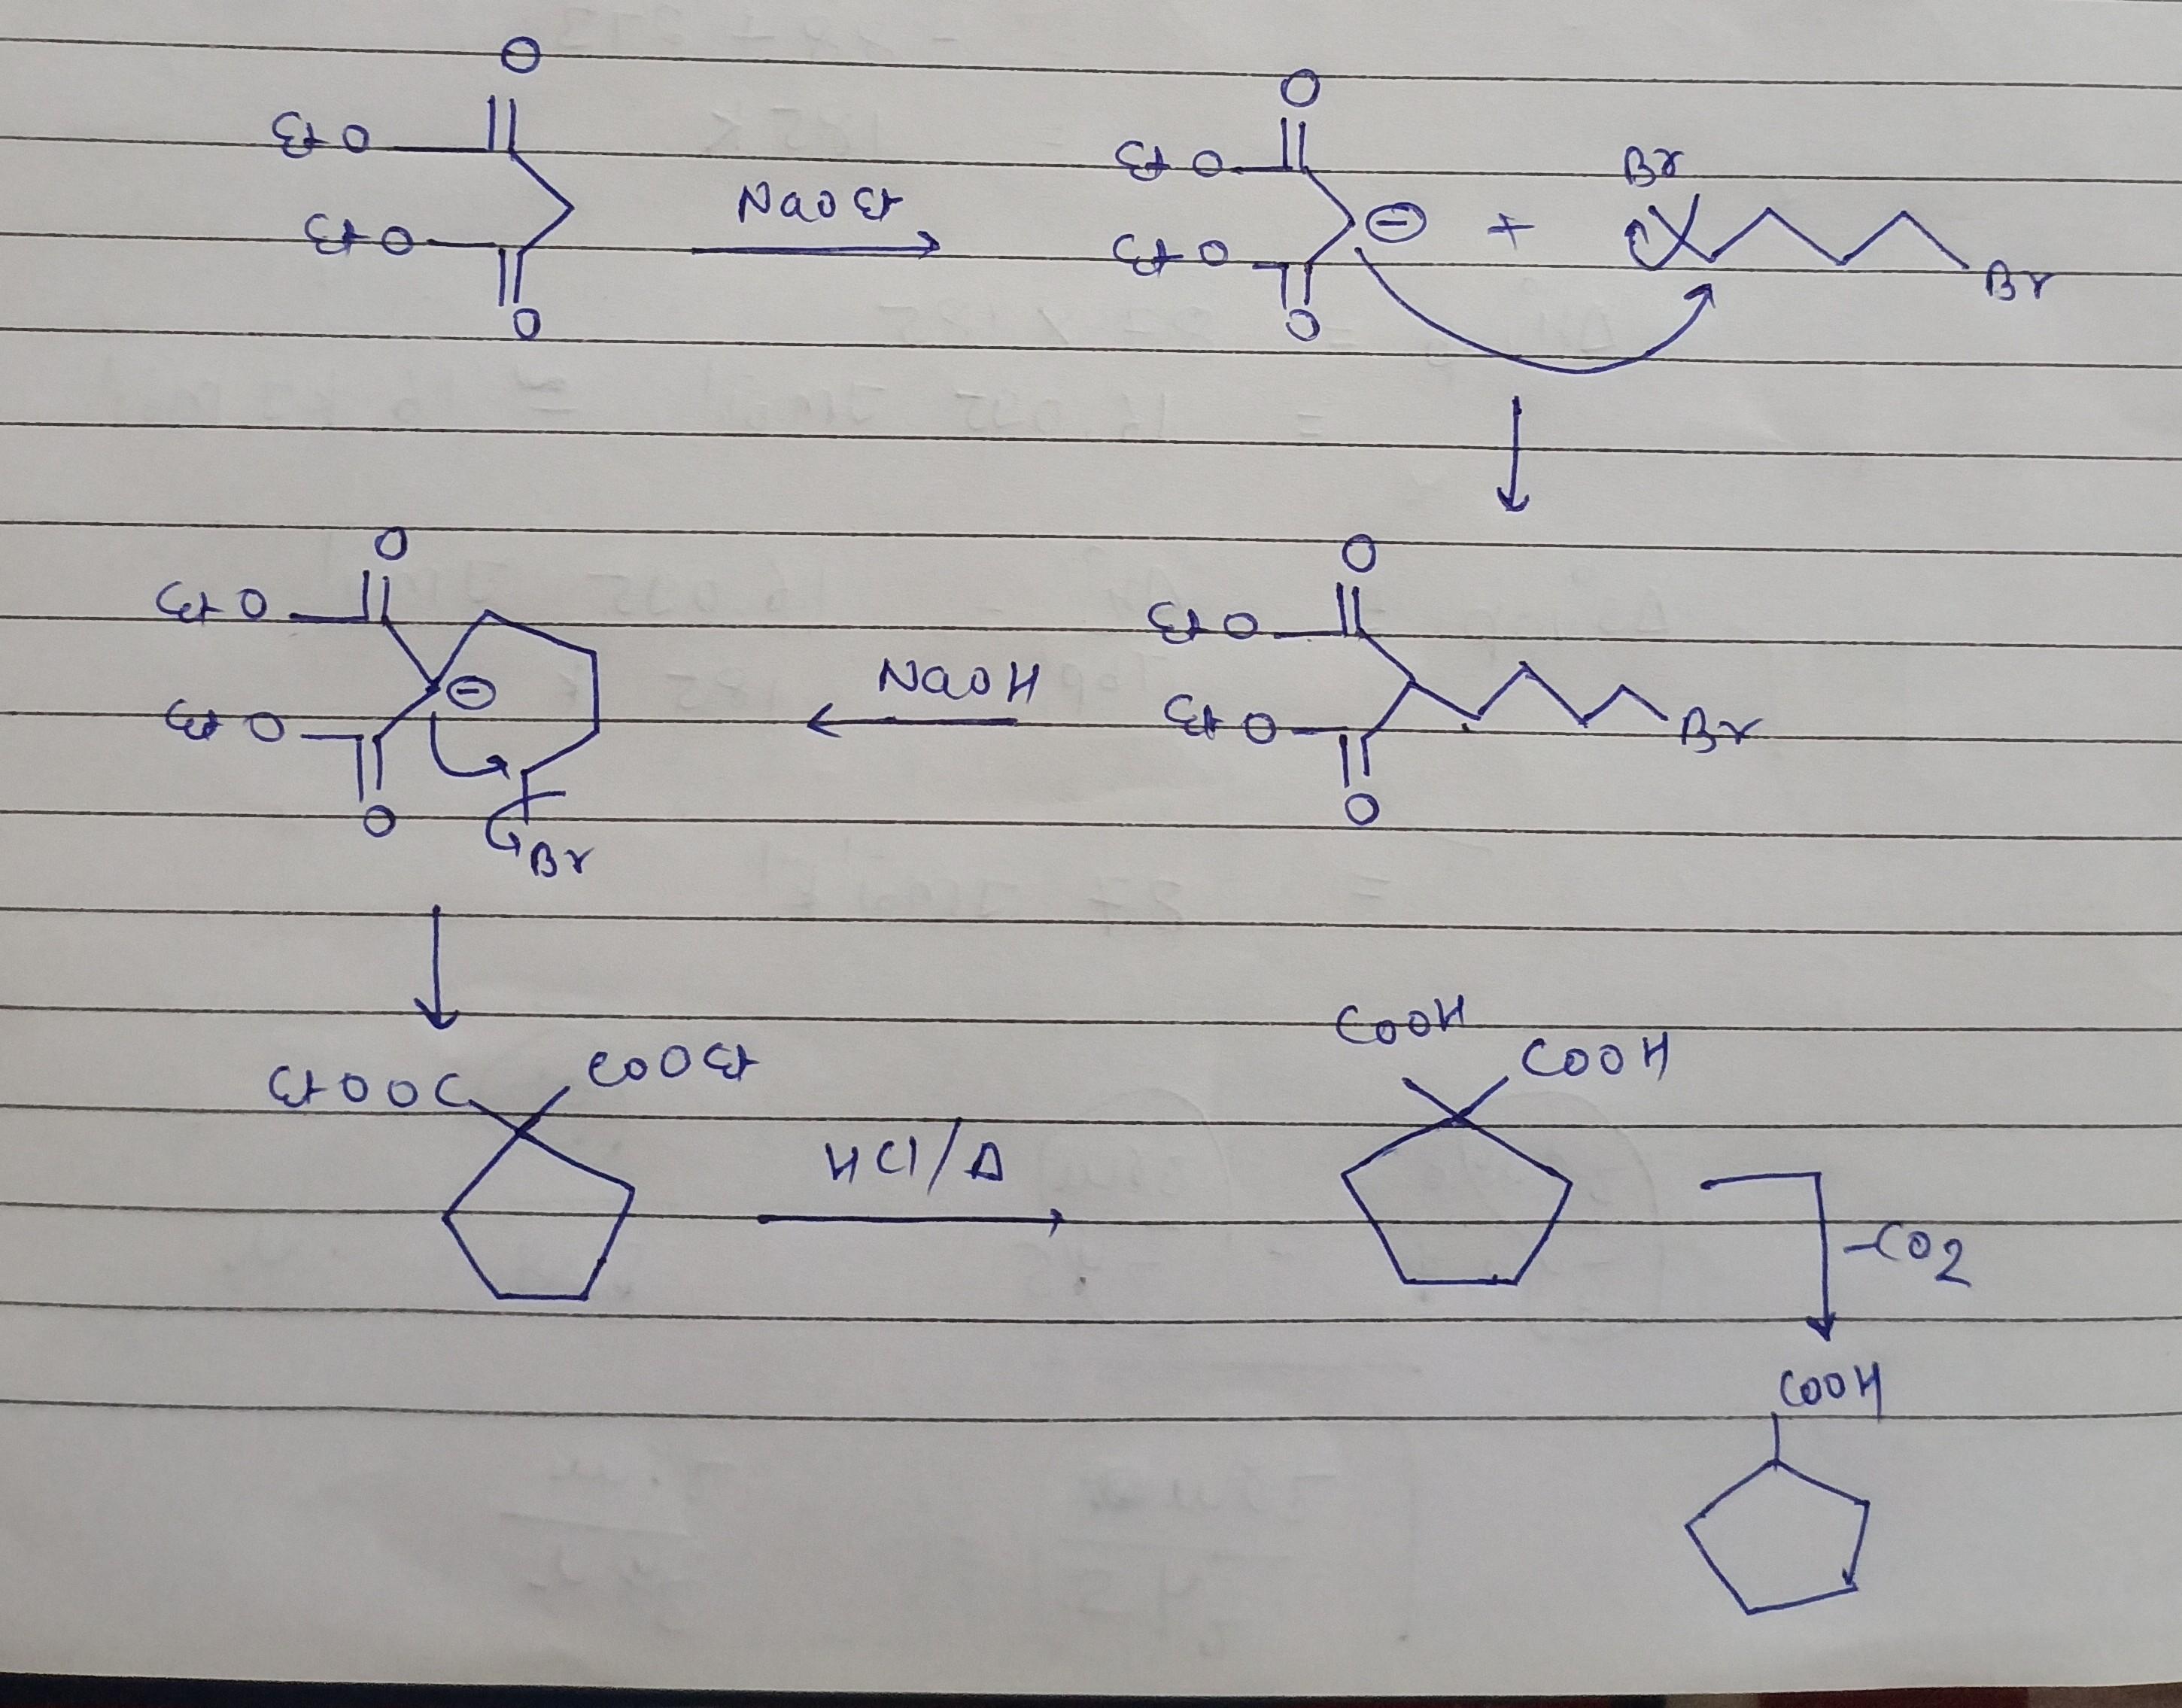 O O
EtO EtO Br
NaOEt
EtO EtO ⊖ + Br
O O
O O
EtO EtO
⊖ NaOH
EtO EtO Br
O O
Br
COOH
EtOOC COOEt COOH
HCl/Δ
-CO2
COOH